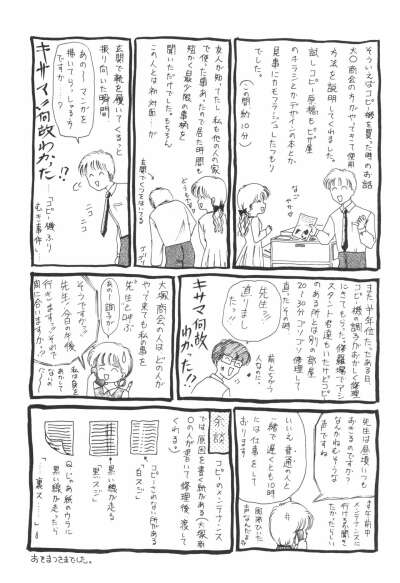 そういえばコピー機を買った時のお話
大〇商会の方がやってきて使用
方法を説明してくれました。
試しコピー原稿もピザ屋
のチラシとかデザインの本とか
見事にカモフラージュしたつもり
でした。
(この間約10分)
なごやか
友人が知ってたし私も他の人の家
で使った事あったので居た時間も
短かく最少限の事柄を
聞いただけでした。もちろん
この人とは初対面。が
どうもです
玄関でくつをはいてる
玄関で靴を履いてくるっと
振り向いた瞬間
あの…マンガを
描いてらっしゃる方
ですか…?
キサマ何故わかった…!!
ニコ
ニコ
「コピー機ふり
むき事件」
また半年位たったある日、
コピー機の調子がおかしく修理
にきてもらった。修羅場でアシ
スタント君達もいたけどコピー
のある所とは別の部屋
20〜30分ゴソゴソ修理して
直ったその時
先生!!
直りまし
たっ
前とちがう
人なのに
キサマ何故
わかった!!
大塚商会の人はどの人が
やって来ても私の事を
"先生"と呼ぶ
あの…調子が
そうですか!!
先生!今日の午後
行きますっ!それで
間に合いますか!?
私は身を
あかして
ないのに
先生は昼頃いつも
おきるのですか?
なんかねむそうな
声ですね
まず午前中
メンテナンスに
行けるか聞き
たかったらしい
いいえ、普通の人と
一緒で遅くとも10時
には仕事をして
おります
余談
コピーのメンテナンス
では原因を書く紙がある(大塚商
〇の人が書いて修理後渡して
くれる)
コピーされない所がある
「白スジ」
黒い線が走る
「黒スジ」
Q.じゃあ紙のウラに
黒い線が走ったら
「裏スジ……」
おそまつさまでした。